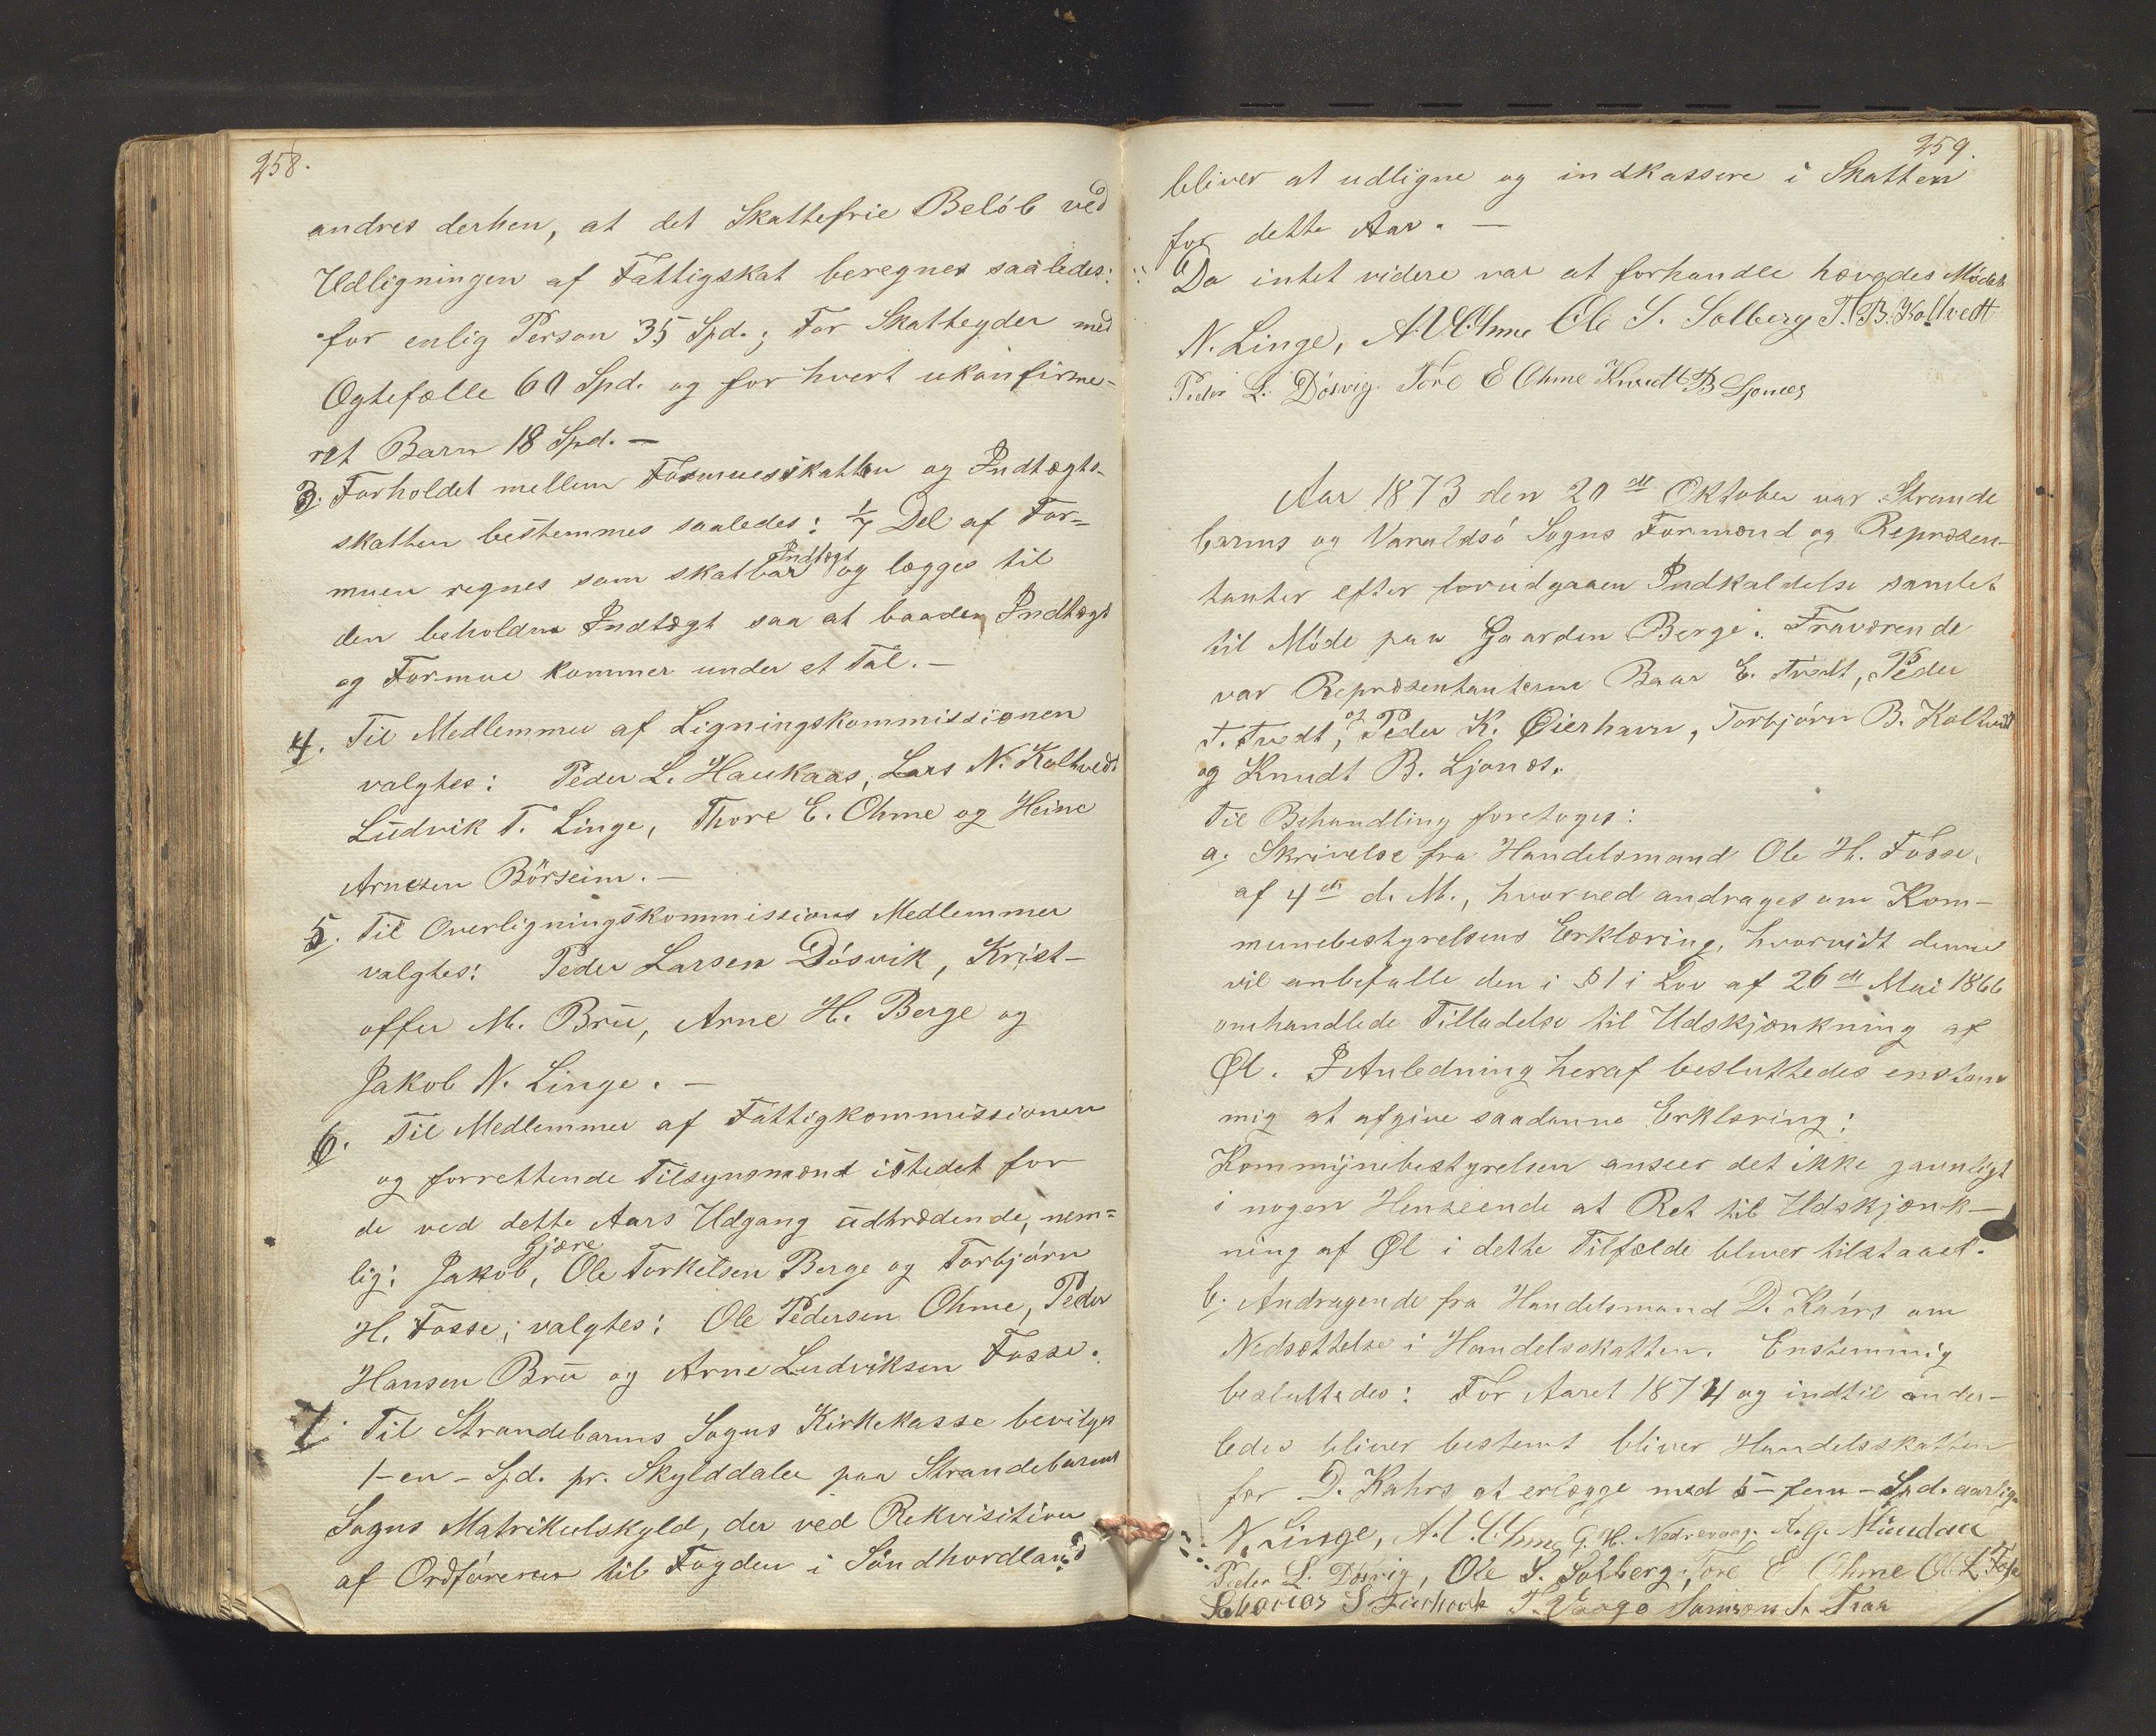 258.
andres derhen, at det Skattefrie Beløb ved
Udligningen af Fattigskat beregnes saaledes:
for enlig Person 35 Spd.; For Skatteyder med
Ogtefælle 60 Spd. og for hvert ukonfirme-
ret Barn 18 Spd. —
3. Forholdet mellem Formuesskatten og Indtægts-
skatten bestemmes saaledes: 1/7 Del af For-
muen regnes som skatbar Indtægt og lægges til
den beholdne Indtægt saa at baade Indtægt
og Formue kommer under et Tal. —
4. Til Medlemmer af Ligningskommissionen
valgtes: Peder L. Haukaas, Lars N. Kolltvedt
Ludvik T. Linge, Thore E. Ohme og Heine
Arnesen Börseim. —
5. Til Overligningskommissions Medlemmer
valgtes: Peder Larsen Døsvik, Krist-
offer M. Bru, Arne H. Berge og
Jakob N. Linge. —
6. Til Medlemmer af Fattigkommissionen
og forrettende Tilsynsmænd istedet for
de ved dette Aars Udgang udtrædende, nem-
lig: Jakob Gjære, Ole Torkelsen Berge og Torbjørn
H. Fosse; valgtes: Ole Pedersen Ohme, Peder
Hansen Bru og Arne Ludviksen Fosse.
7. Til Strandebarms Sogns Kirkekasse bevilges
1 - en - Spd. pr. Skylddaler paa Strandebarms
Sogns Matrikulskyld, der ved Rekvisition
af Ordføreren til Fogden i Søndhordland
259.
bliver at udligne og indkassere i Skatten
for dette Aar. —
Da intet videre var at forhandle hævedes Mødet
N. Linge, A. Ohme Ole S. Solberg T. B. Kolltvedt
Peder L. Døsvig. Tore E Ohme Knudt B Ljones
Aar 1873 den 20de Oktober var Strande
barms og Varaldsø Sogns Formænd og Repræsen-
tanter efter forudgaaen Indkaldelse samlet
til Møde paa Gaarden Berge. Fraværende
var Repræsentanterne Baar E. Tvedt, Peder
T. Tvedt, og Peder K. Øierhavn, Torbjørn B. Koltvedt
og Knudt B. Ljones.
Til Behandling foretoges:
a. Skrivelse fra Handelsmand Ole H. Fosse
af 4de d. M., hvorved andrages om Kom-
munebestyrelsens Erklæring, hvorvidt denne
vil anbefalle den i § 1 i Lov af 26de Mai 1866
omhandlede Tilladelse til Udskjænkning af
Øl. I Anledning heraf besluttedes enstem
mig at afgive saadanne Erklæring:
Kommunebestyrelsen anseer det ikke gavnligt
i nogen Henseende at Ret til Udskjænk-
ning af Øl i dette Tilfælde bliver tilstaaet.
b. Andragende fra Handelsmand D. Kahrs om
Nedsættelse i Handelsskatten. Enstemmig
besluttedes: For Aaret 1874 og indtil ander-
ledes bliver bestemt bliver Handelsskatten
for D. Kahrs at erlægge med 5 - fem - Spd. aarlig.
N. Linge, A. Ohme G. H. Nedrevaage A. G. Mundau
Peder L. Døsvig, Ole S. Solberg, Tore E Ohme Ole L Fosse
S T. Vaage Samson S. Traa